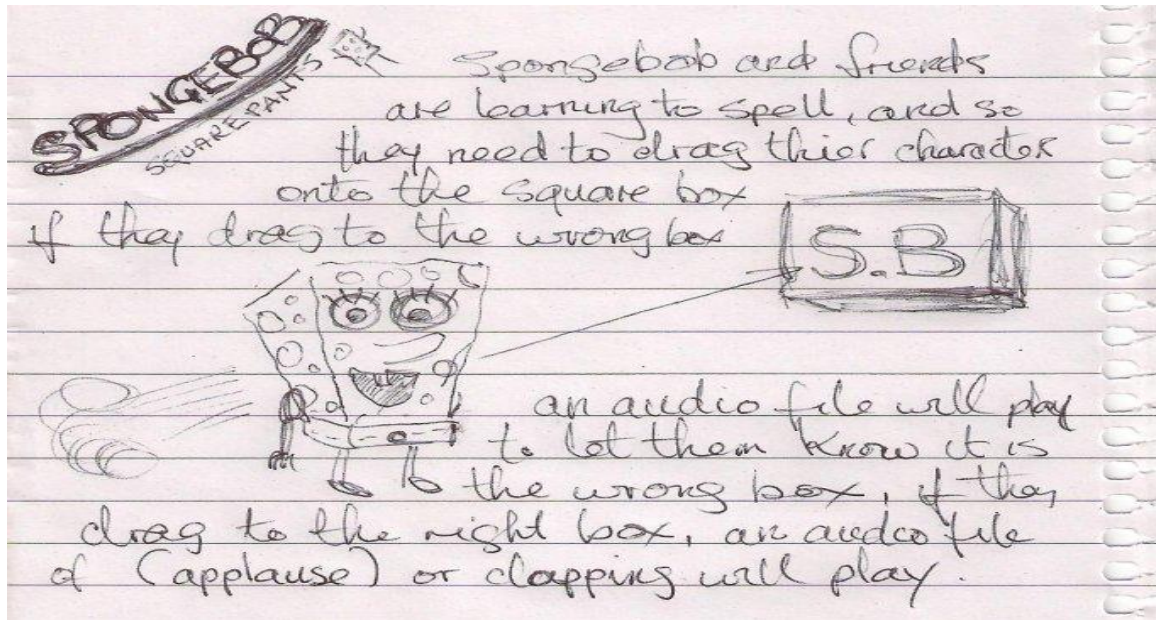 SPONGEBOB
SQUAREPANTS
Spongebob and friends
are learning to spell, and so
they need to drag thier character
onto the square box
if they drag to the wrong box
S.B
an audio file will play
to let them know it is
the wrong box, if they
drag to the right box, an audio file
of (applause) or clapping will play.